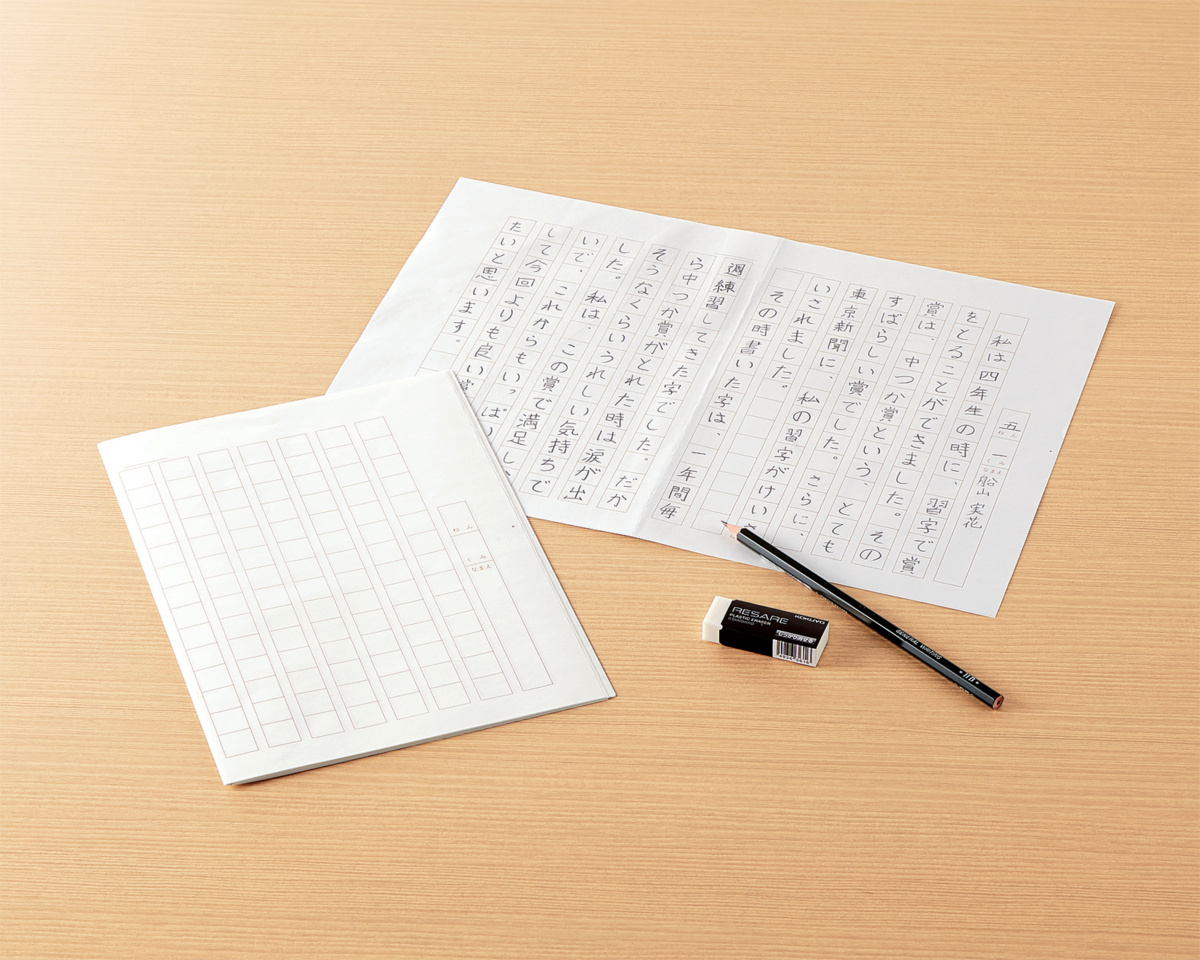 五 ねん 一 くみ
なまえ 船山 実花
私は四年生の時に、習字で賞
をとることができました。その
賞は、中つか賞という、とても
すばらしい賞でした。さらに、
東京新聞に、私の習字がけいさ
いされました。
その時書いた字は、一年間毎
週練習してきた字でした。だか
ら中つか賞がとれた時は涙が出
そうなくらいうれしい気持ちで
した。私は、この賞で満足し
いで、これからもいっぱい
して今回よりも良い賞
たいと思います。
ねん
くみ
なまえ
RESARE
PLASTIC ERASER
STANDARD
KOKUYO
GENERAL WRITING